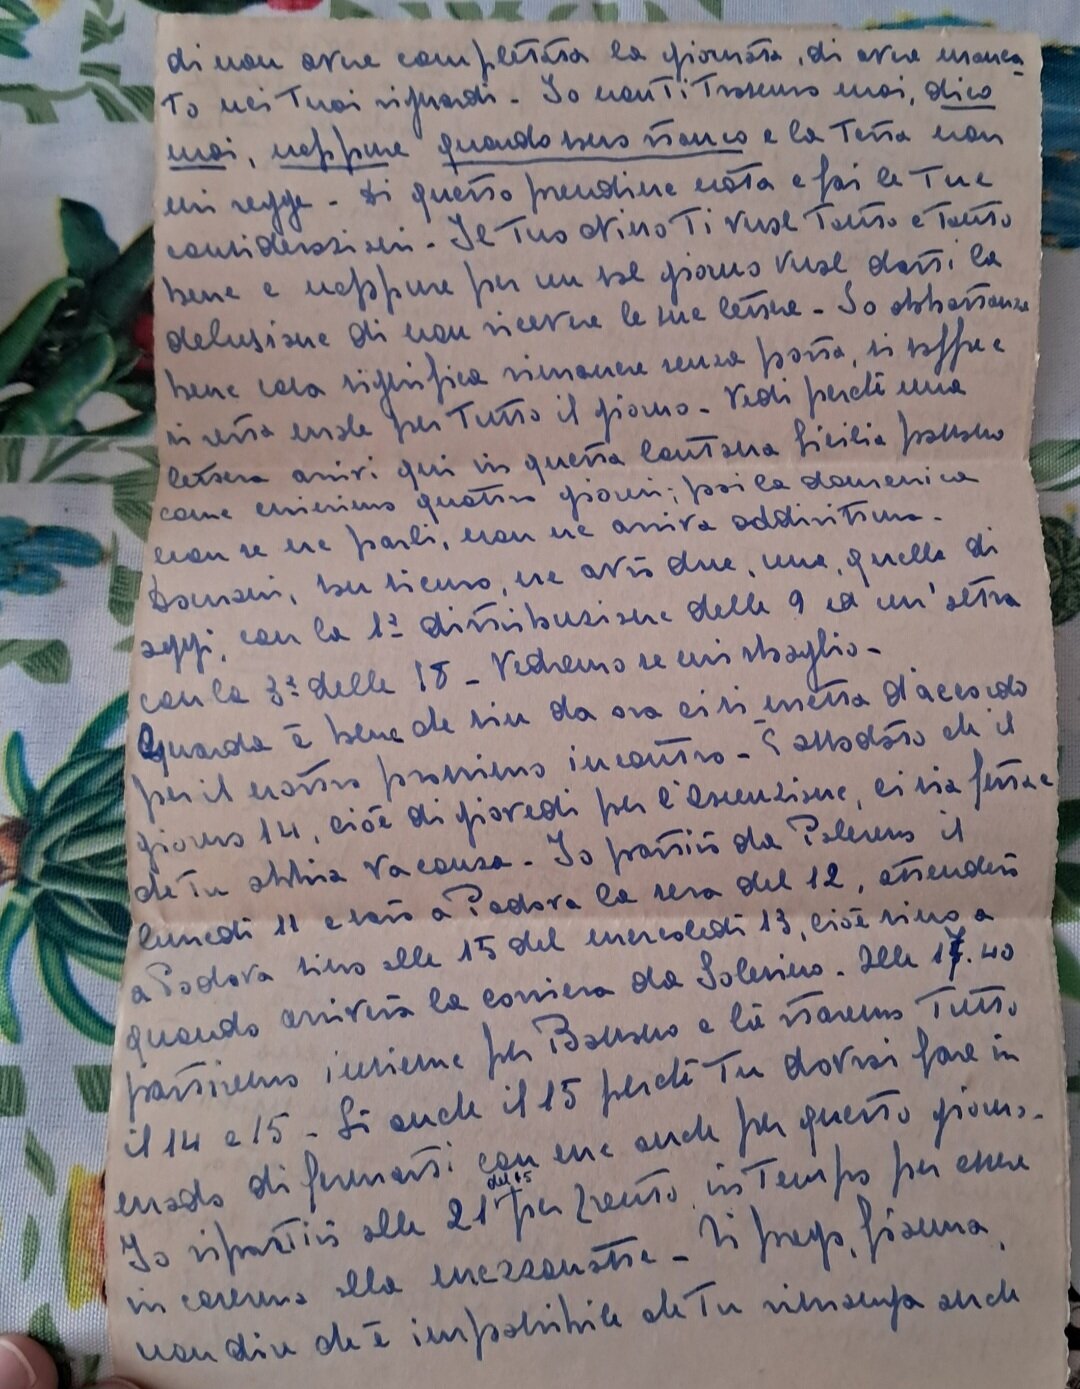 di non avere completata la giornata, di avere manca
to nei Tuoi riguardi - Io non Ti Trascuro mai, dico
mai, neppure quando sono stanco e la Testa non
mi regge - Di questo prendine nota e fai le Tue
considerazioni - Il Tuo Ti vuol Tanto e Tanto
bene e neppure per un sol giorno vuol darti la
delusione di non ricevere le sue lettere - So abbastanza
bene cosa significa rimanere senza posta, si soffre e
si resta male per Tutto il giorno - Vedi perché una
lettera arrivi qui in questa lontana Sicilia passano
come minimo quattro giorni; poi la domenica
non se ne parli, non ne arriva addirittura -
Domani, son sicuro, ne avrò due, una, quella di
oggi, con la 1ª distribuzione delle 9 ed un'altra
con la 3ª delle 18 - Vedremo se mi sbaglio -
Guarda è bene che sin da ora ci si metta d'accordo
per il nostro prossimo incontro - È assodato che il
giorno 14, cioè di giovedì per l'Ascenzione, ci sia festa e
che Tu abbia vacanza - Io partirò da Palermo il
lunedì 11 e sarò a Padova la sera del 12, attenderò
a Padova sino alle 15 del mercoledì 13, cioè sino a
quando arriverà la corriera da Solesino - Alle 17.40
partiremo insieme per Bassano e là staremo Tutto
il 14 e 15 - Sì anche il 15 perché Tu dovrai fare in
modo di fermarti con me anche per questo giorno -
Io ripartirò alle 21 del 15 per Trento in Tempo per essere
in caserma alla mezzanotte - Ti prego, gioenna,
non dire che è impossibile che Tu rimanga anche